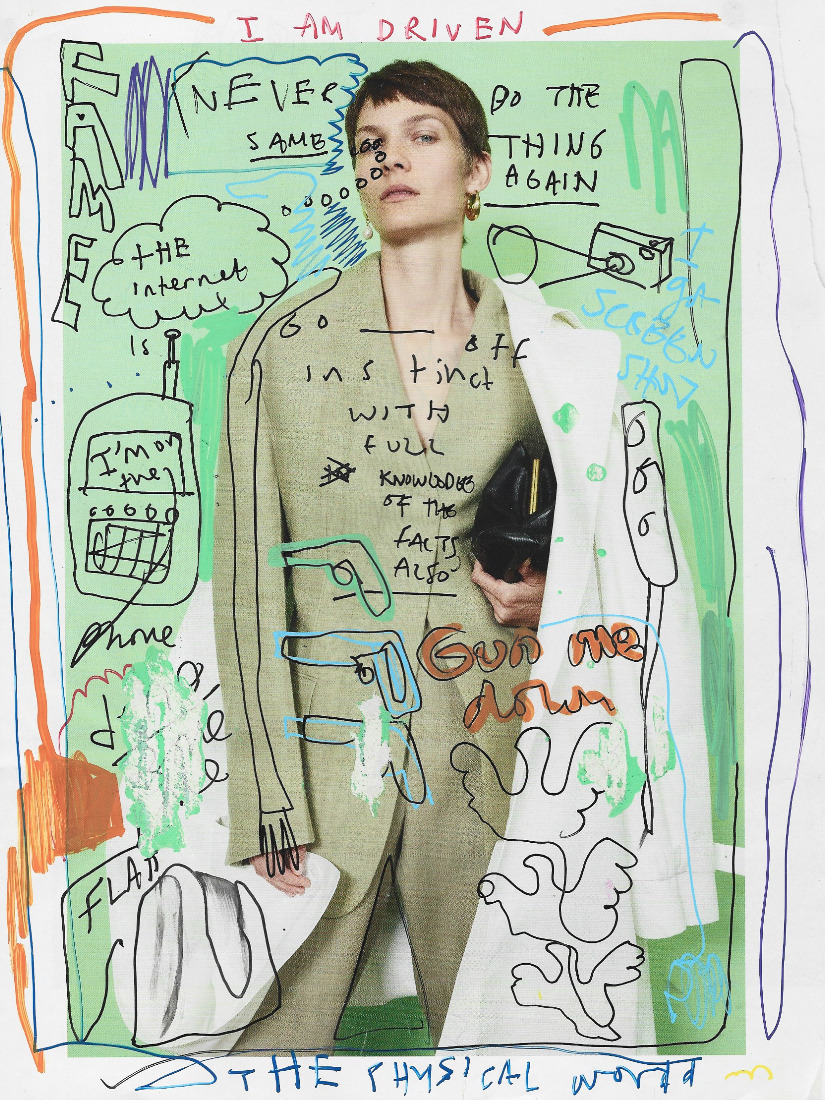 I AM DRIVEN
FAME
NEVER
SAME
DO THE
THING
AGAIN
THE
internet
is
I
SCREEN
GO
OFF
instinct
WITH
FULL
KNOWLODGE
OF THE
FACTS
ALSO
I'M on
the
phone
Gun me
down
THE PHYSICAL World